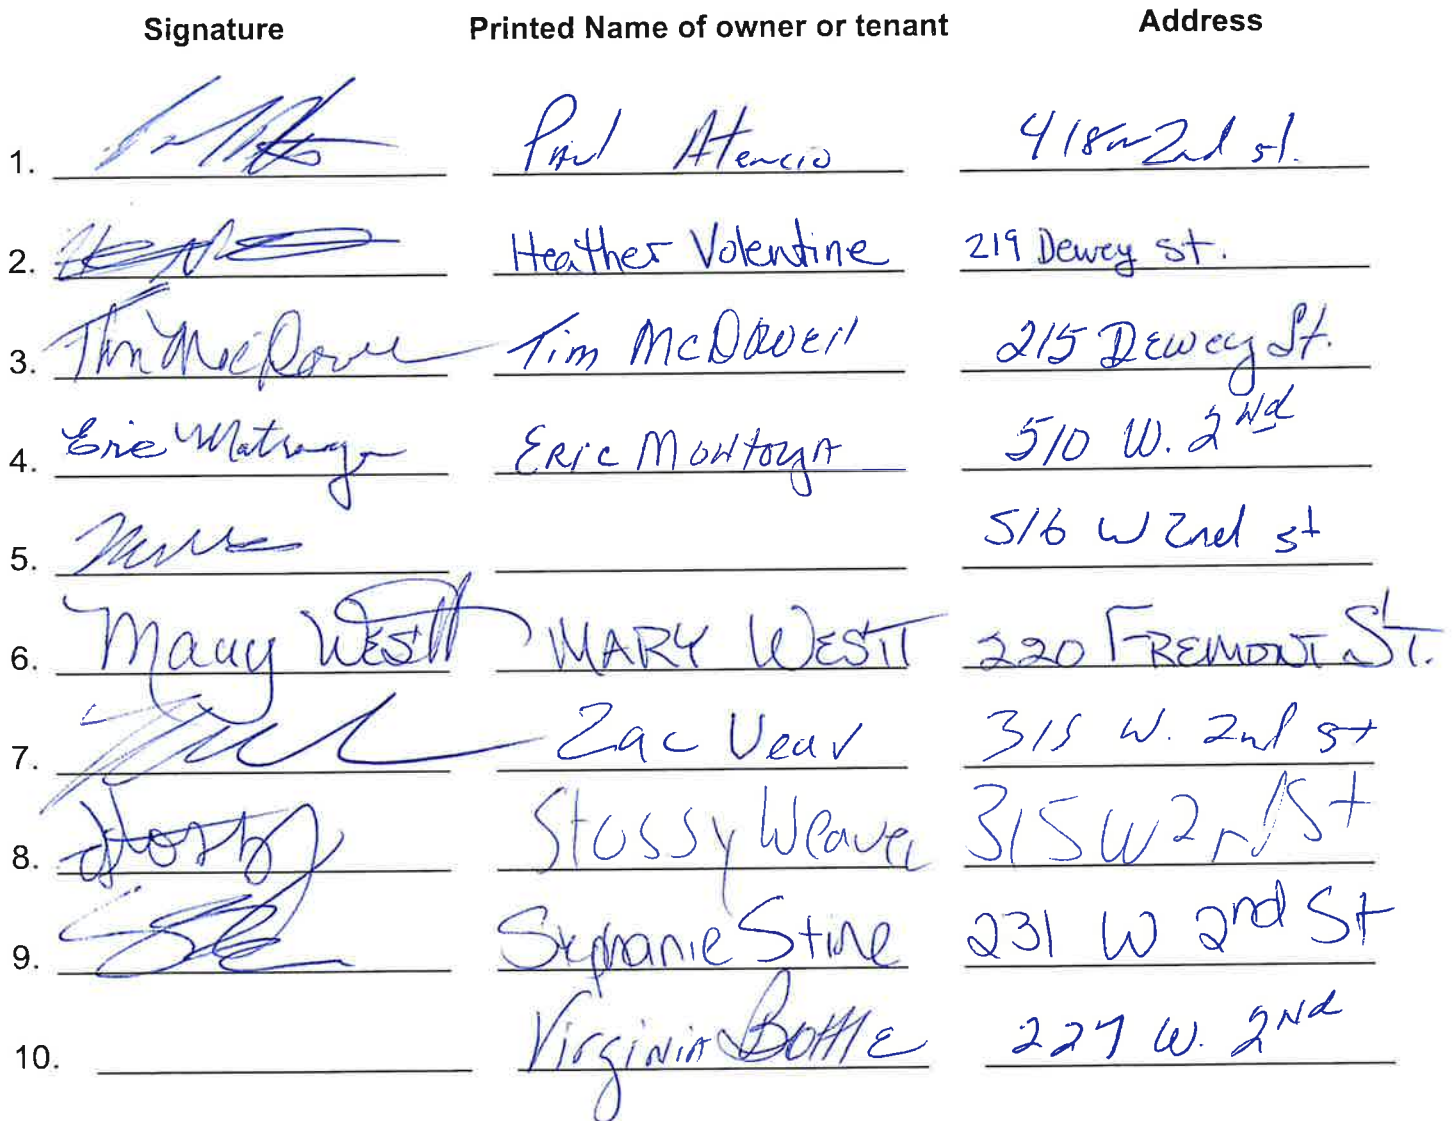 Signature Printed Name of owner or tenant Address
1. Paul Atencio 418 w 2nd st.
2. Heather Volentine 219 Dewey st.
3. Tim McDowell Tim McDowell 215 Dewey St.
4. Eric Montoya Eric Montoya 510 W. 2nd
5. 516 W 2nd st
6. Mary West MARY WEST 220 FREMONT ST.
7. Zac Vear 315 W. 2nd st
8. Stossy Weaver 315 W 2nd St
9. Stephanie Stine 231 W 2nd St
10. Virginia Bottle 227 W. 2nd